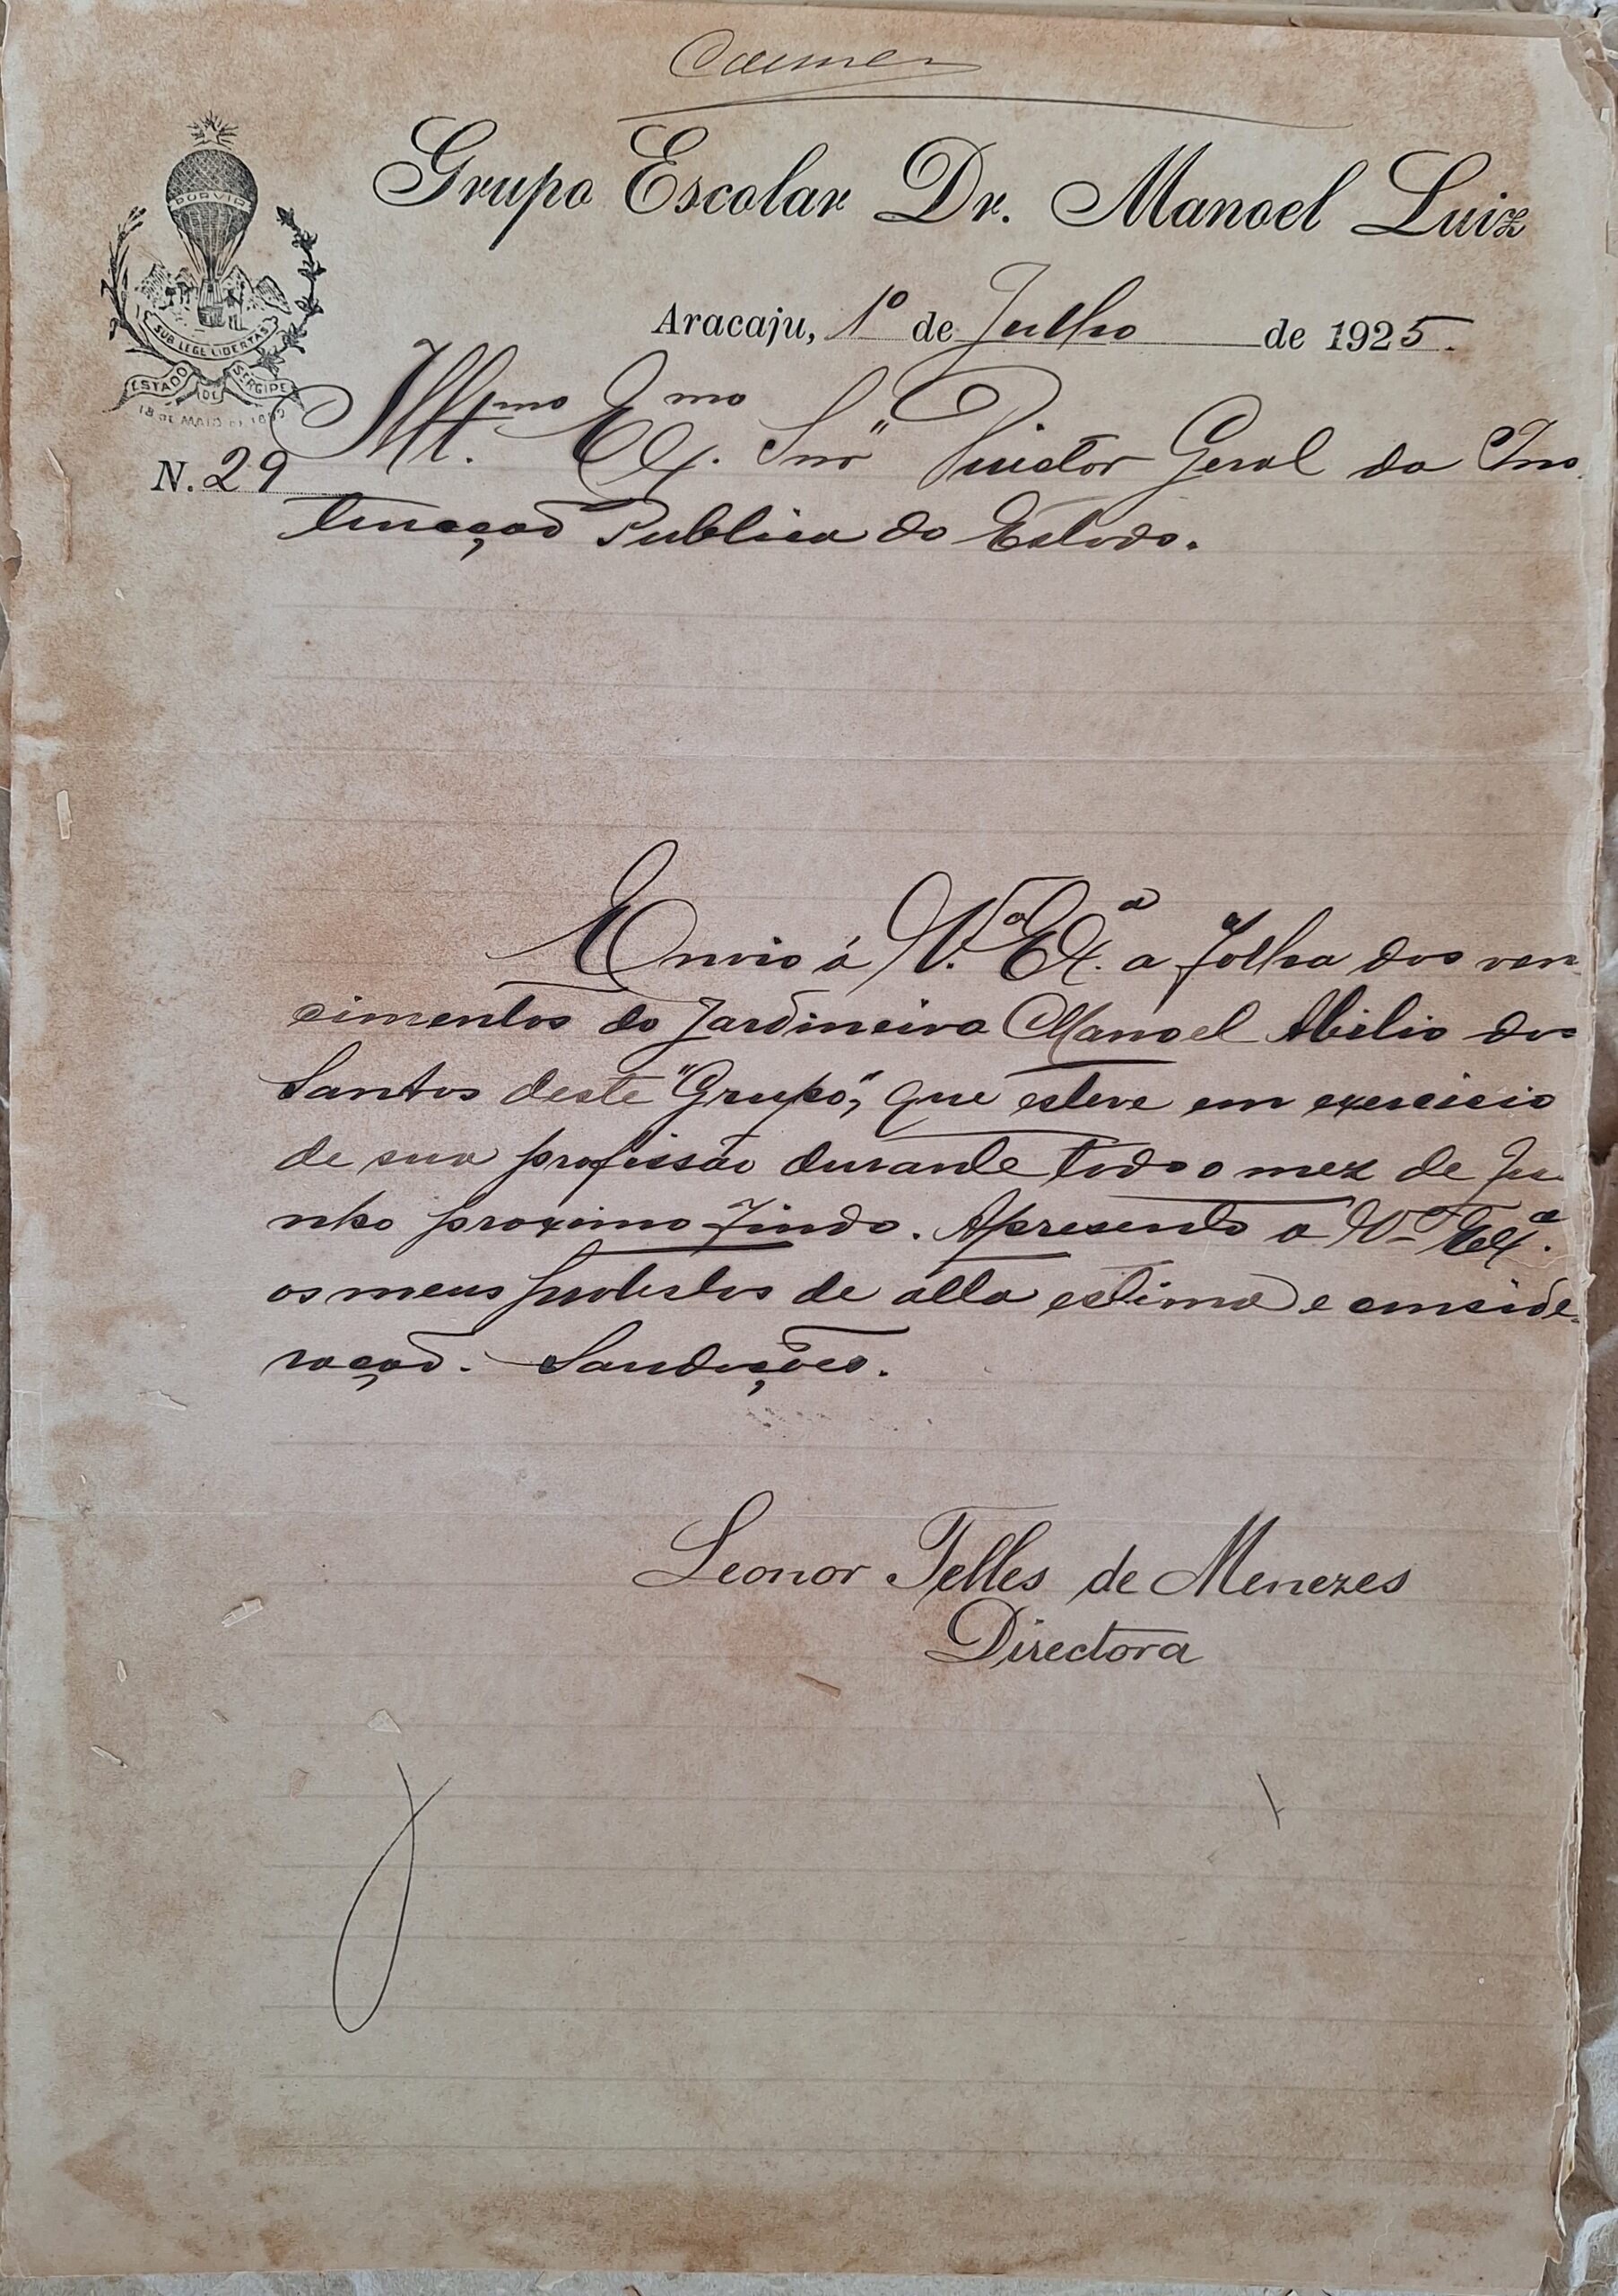 Carmen
Grupo Escolar Dr. Manoel Luiz
PORVIR
SUB LEGE LIBERTAS
ESTADO DE SERGIPE
18 DE MAIO DE 1892
Aracaju, 1º de Julho de 1925.
N. 29
Illmo Exmo Snr Director Geral da Ins
trucção Publica do Estado.
Envio á V.ª Ex.ª a folha dos ven
cimentos do Jardineiro Manoel Abilio dos
Santos deste "Grupo", que esteve em exercicio
de sua profissão durante todo o mez de Ju
nho proximo findo. Apresento a V.ª Ex.ª
os meus protestos de alta estima e conside
ração. Saudações.
Leonor Telles de Menezes
Directora